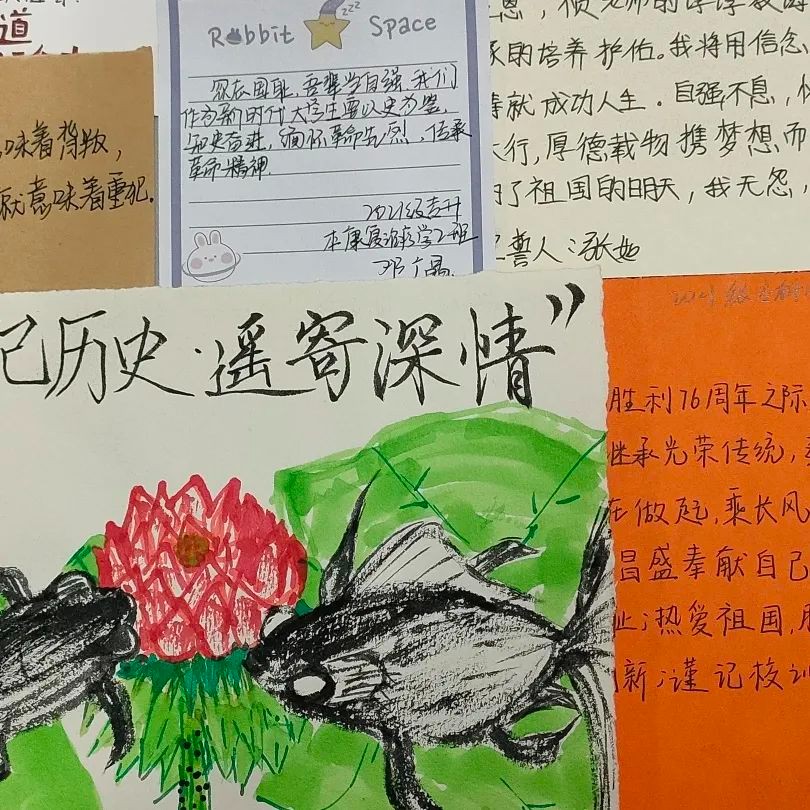 道
味着背叛,
就意味着重犯.
Rabbit Space
zzz
勿忘国耻,吾辈当自强.我们
作为新时代大学生要以史为鉴,
知史奋进,缅怀革命先烈,传承
革命精神.
2021级专升
本康复治疗学2班
邓
的培养护佑。我将用信念
就成功人生.自强不息,
行,厚德载物携梦想而
了祖国的明天,我无怨,
誓人:张
记历史·遥寄深情”
2021级
胜利76周年之际
继承光荣传统,
在做起,乘长风
昌盛奉献自己
;热爱祖国,
新;谨记校训